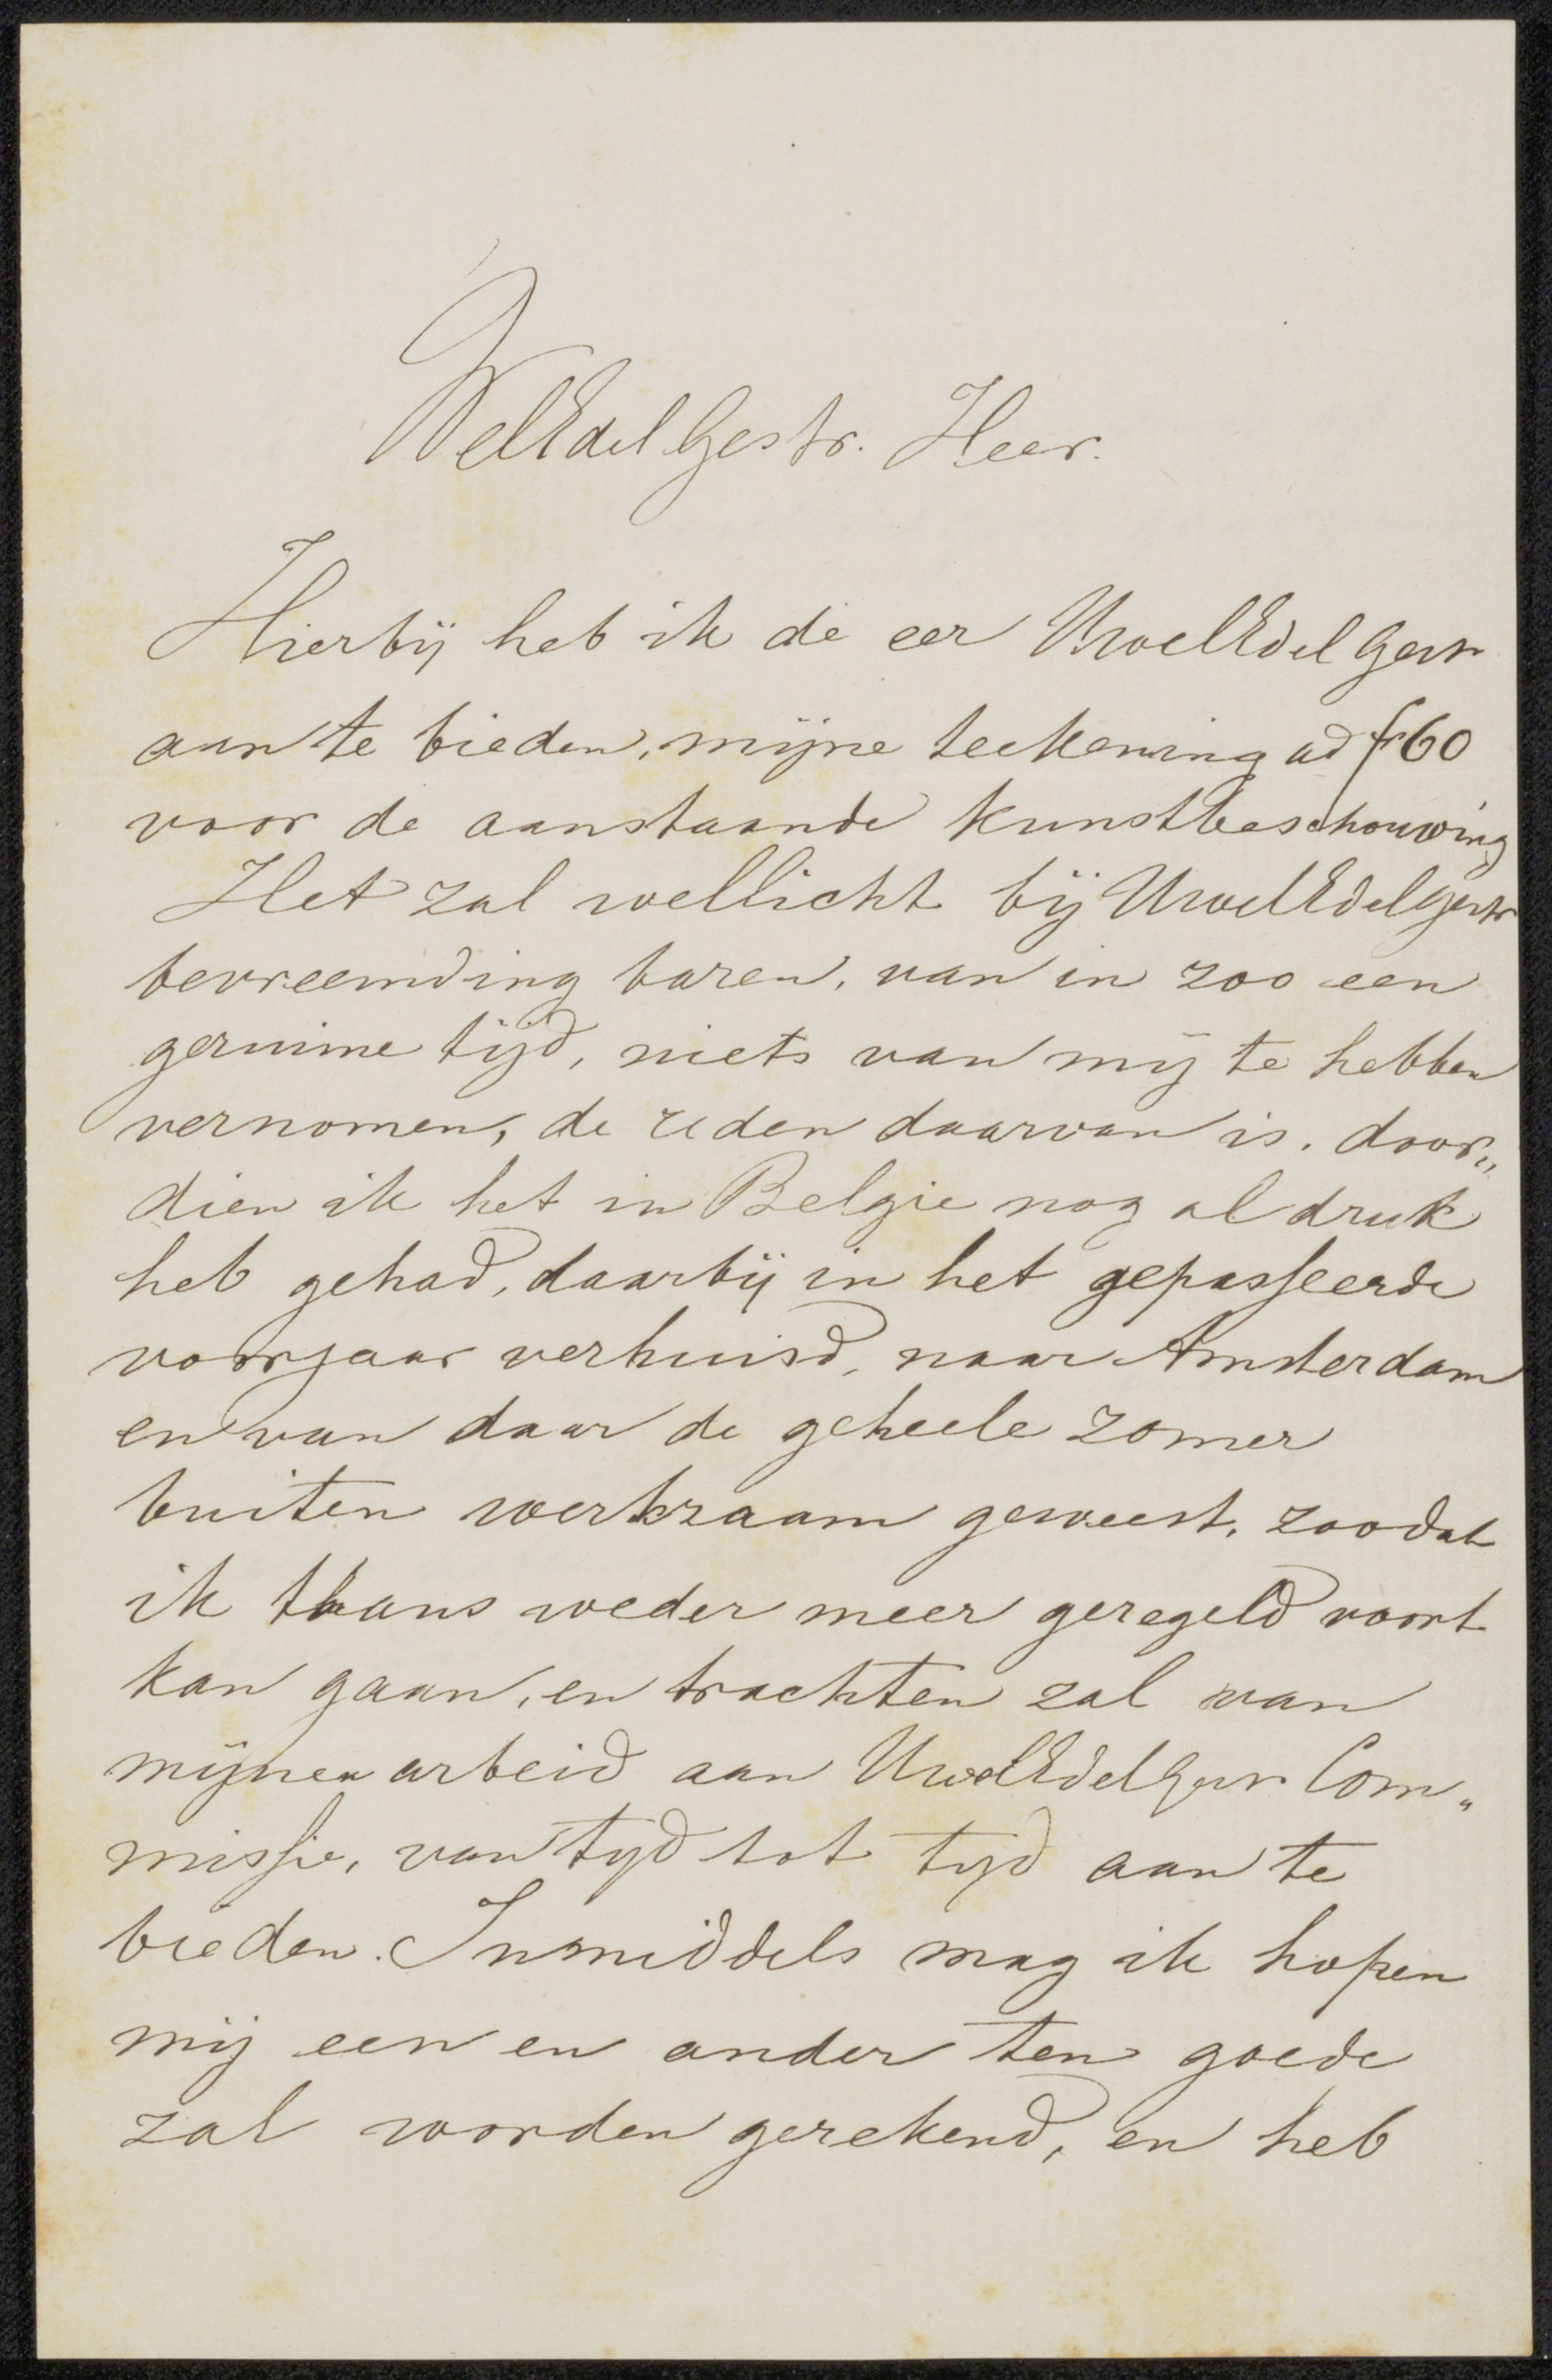 WelEdelGestr. Heer.
Hierbij heb ik de eer UwelEdelGestr
aan te bieden, mijne teekening ad f60
voor de aanstaande Kunstbeschouwing
Het zal wellicht bij UwelEdelGestr
bevreemding baren, van in zoo een
geruime tijd, niets van mij te hebben
vernomen, de reden daarvan is, door„
dien ik het in Belgie nog al druk
heb gehad, daarbij in het gepasseerde
voorjaar verhuisd, naar Amsterdam
en van daar de geheele zomer
buiten werkzaam geweest, zoodat
ik thans weder meer geregeld voort
kan gaan, en trachten zal van
mijnen arbeid aan UwelEdelGestr Com„
missie, van tyd tot tyd aan te
bieden. Inmiddels mag ik hopen
mij een en ander ten goede
zal worden gerekend, en heb